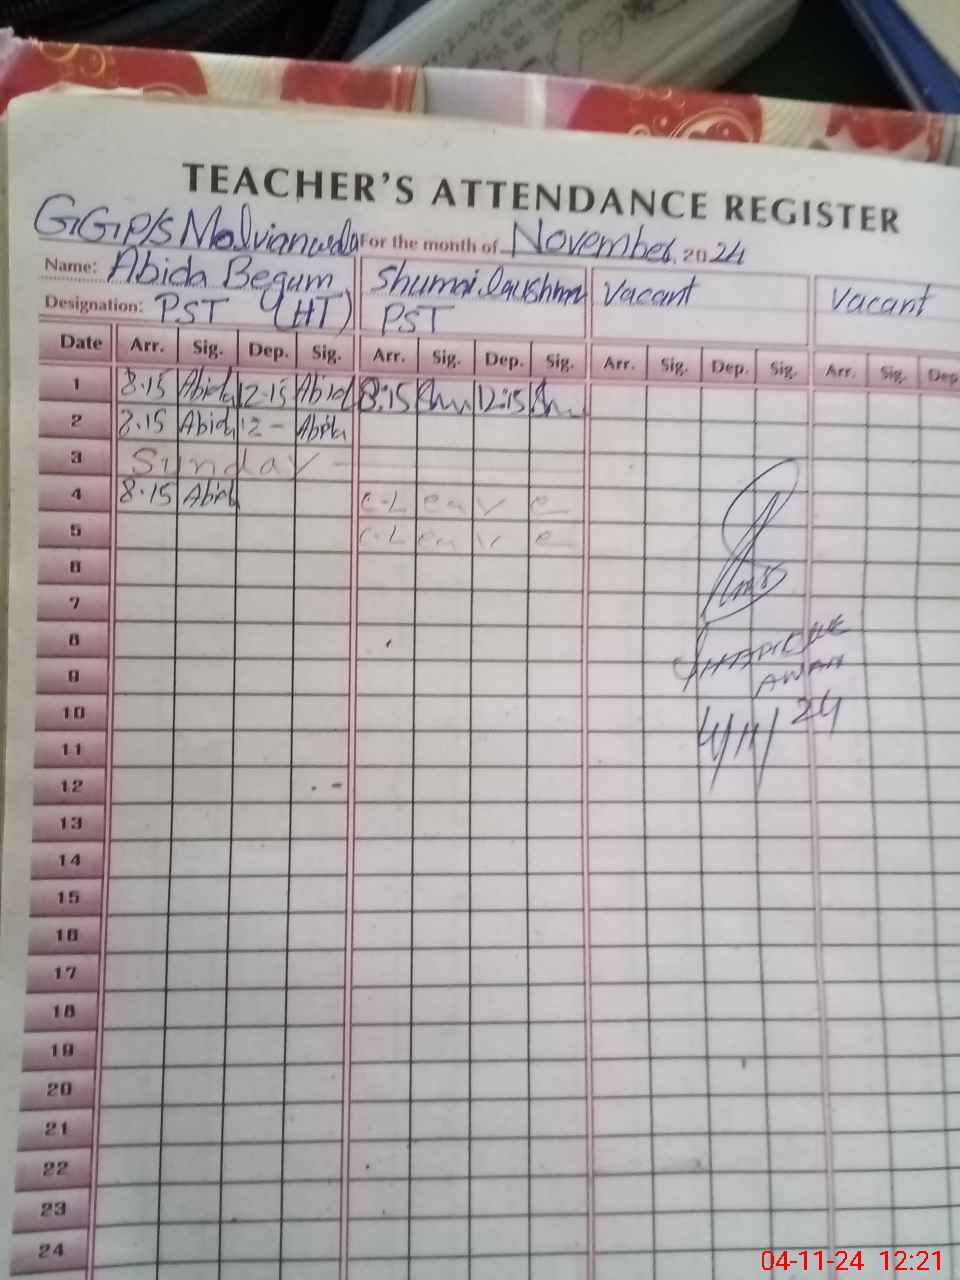 TEACHER'S ATTENDANCE REGISTER
GGP/S For the month of November 2024
Name: Abida Begum Vacant Vacant
Designation: PST (HT) PST
Date Arr. Sig. Dep. Sig. Arr. Sig. Dep. Sig. Arr. Sig. Dep. Sig. Arr. Sig. Dep
1 8.15 Abida 12.15 Abida 8:15 12:15
2 8.15 Abida 12 - Abida
3 Sunday
4 8.15 Abid C-Leave
5 C-Leave
6
7
8
9
AWAN
10
4/11/24
11
12
13
14
15
16
17
18
19
20
21
22
23
24
04-11-24 12:21